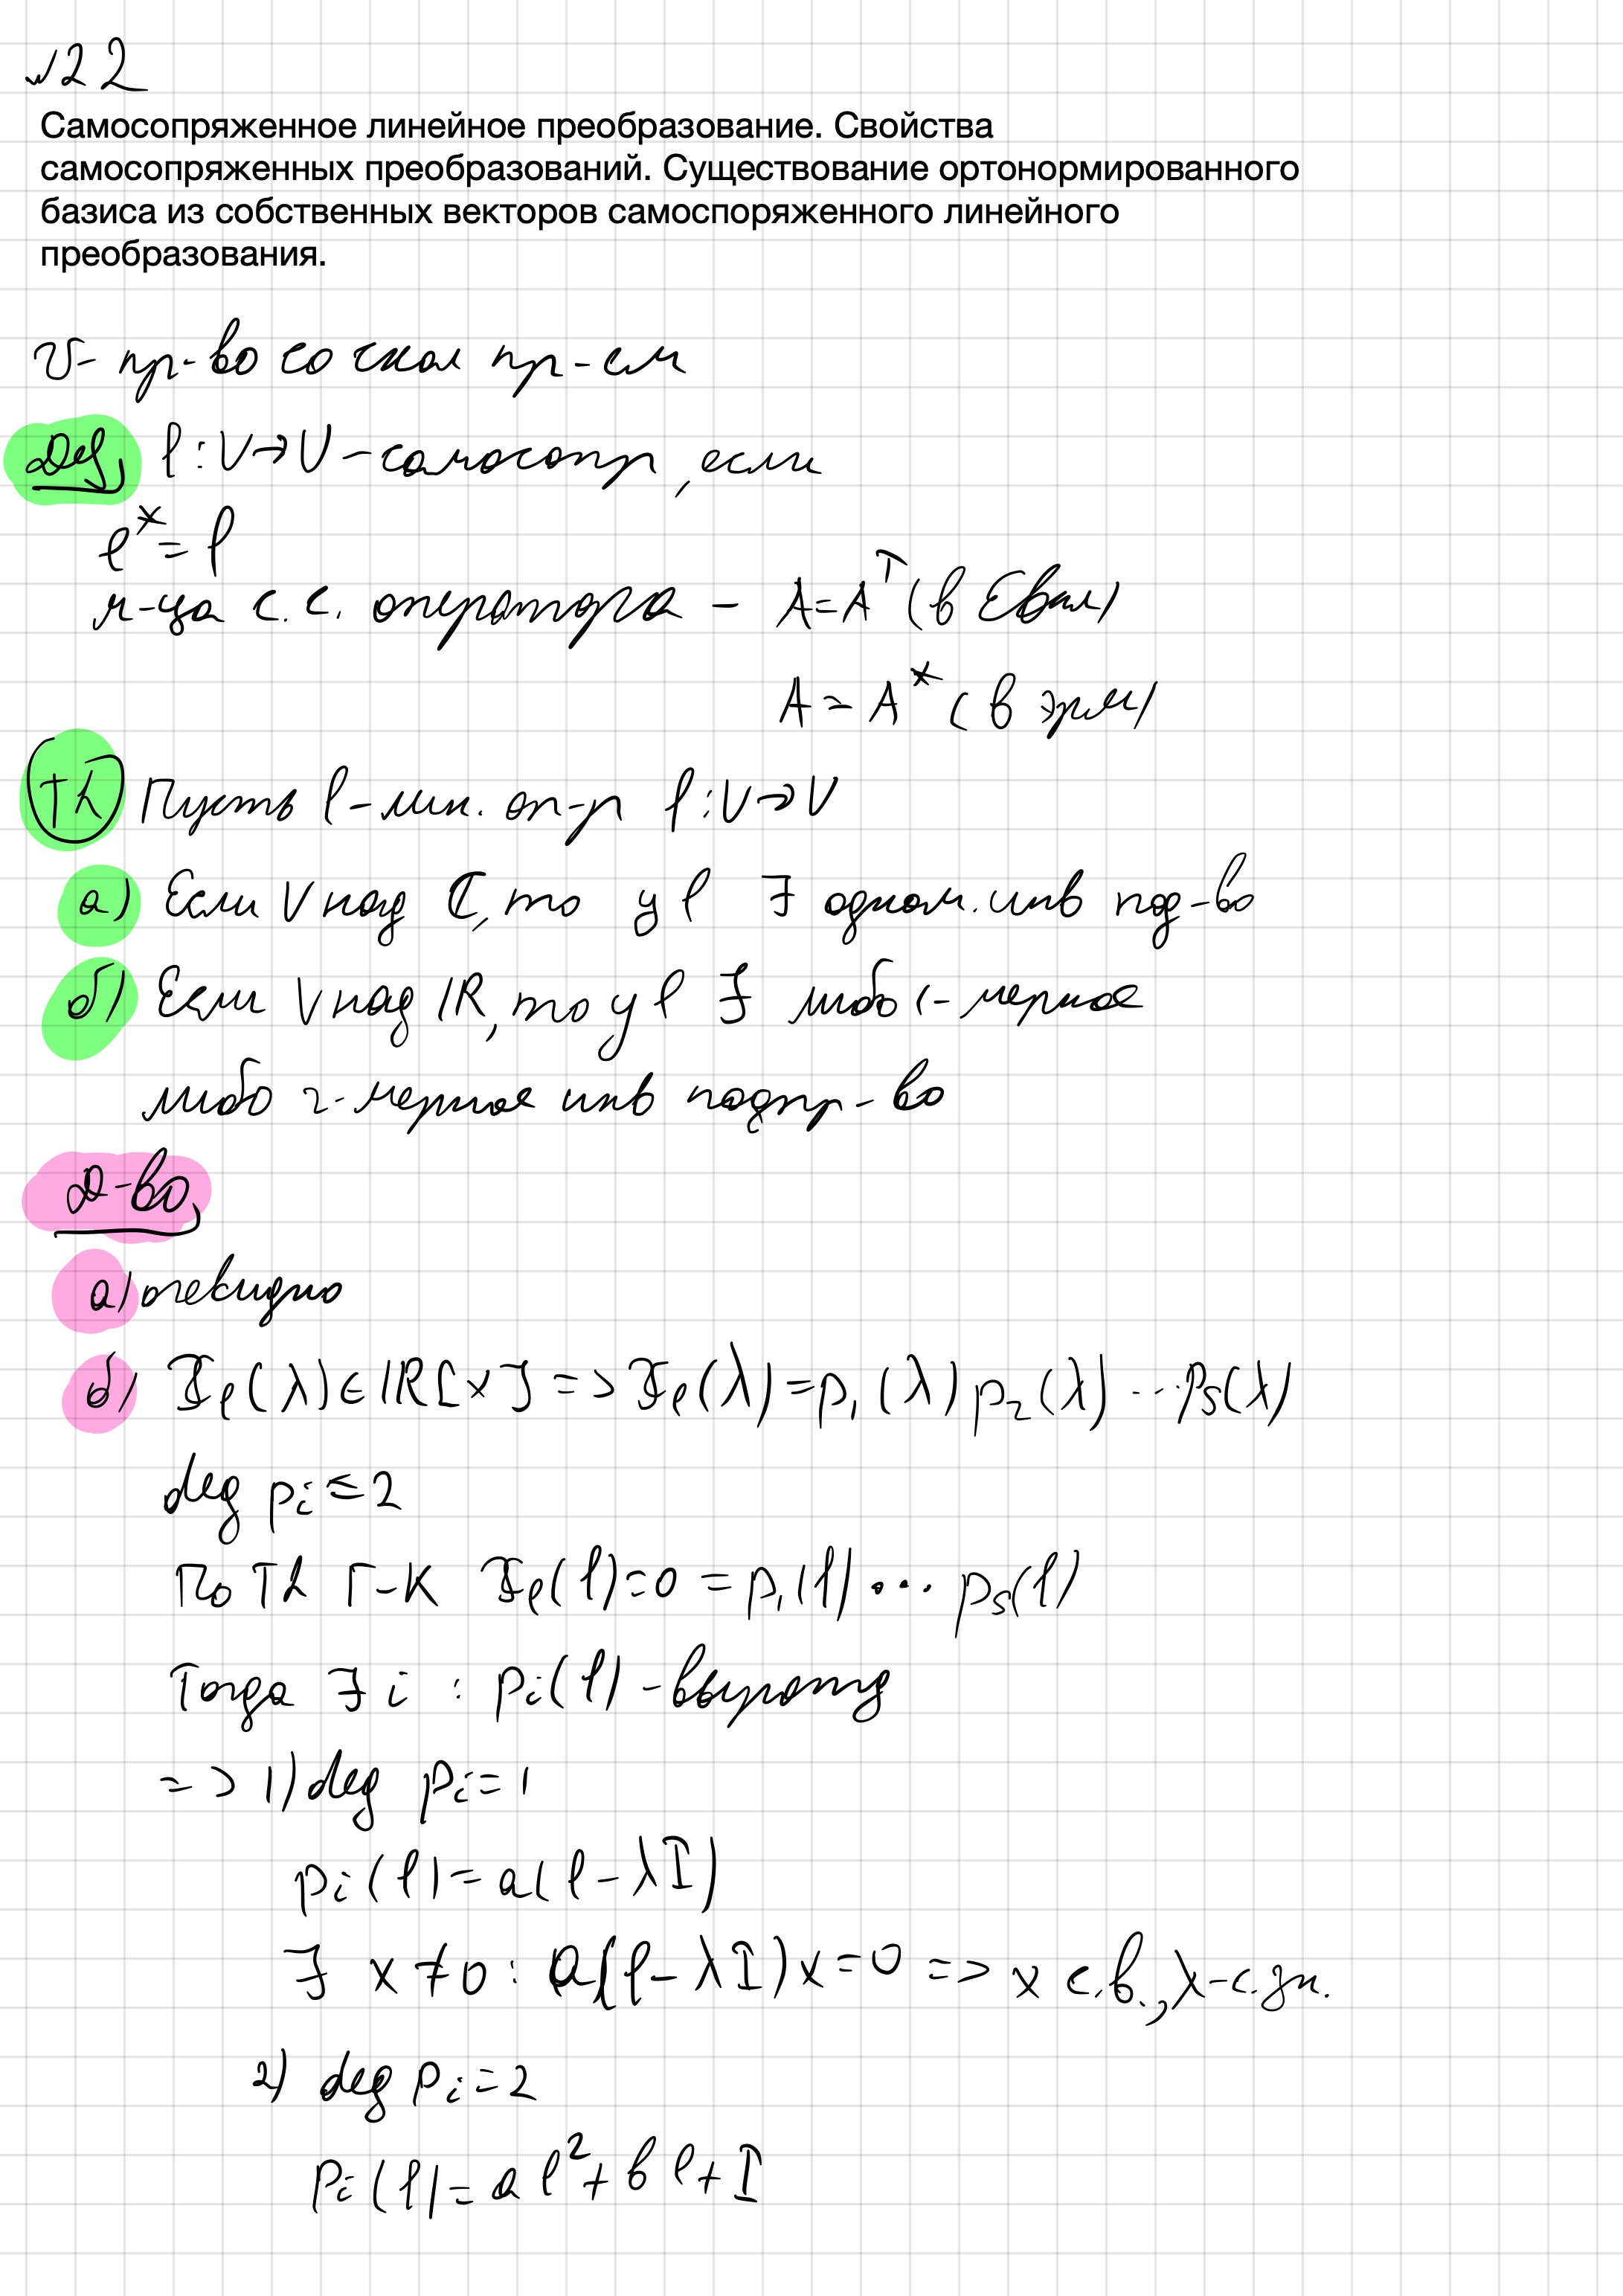 №22
Самосопряженное линейное преобразование. Свойства
самосопряженных преобразований. Существование ортонормированного
базиса из собственных векторов самоспоряженного линейного
преобразования.
V - пр-во со скал пр-ем
Def, φ: V→V - самосопр, если
φ* = φ
м-ца с.с. оператора - A=Aᵀ (в Евкл)
A = A* (в эрм)
Th Пусть φ - лин. оп-р φ: V→V
а) Если V над ℂ, то у φ ∃ одном. инв под-во
б) Если V над ℝ, то у φ ∃ либо 1-мерное
либо 2-мерное инв подпр-во
Д-во,
а) очевидно
б) χφ(λ) ∈ ℝ[x] => χφ(λ) = p₁(λ) p₂(λ) ... pₛ(λ)
deg pᵢ ≤ 2
По Th Г-К χφ(φ)=0 = p₁(φ) ... pₛ(φ)
Тогда ∃ i : pᵢ(φ) - вырожд
=> 1) deg pᵢ = 1
pᵢ(φ) = a(φ - λI)
∃ x ≠ 0 : a(φ - λI)x = 0 => x с.в., λ - с.зн.
2) deg pᵢ = 2
pᵢ(φ) = aφ² + bφ + I